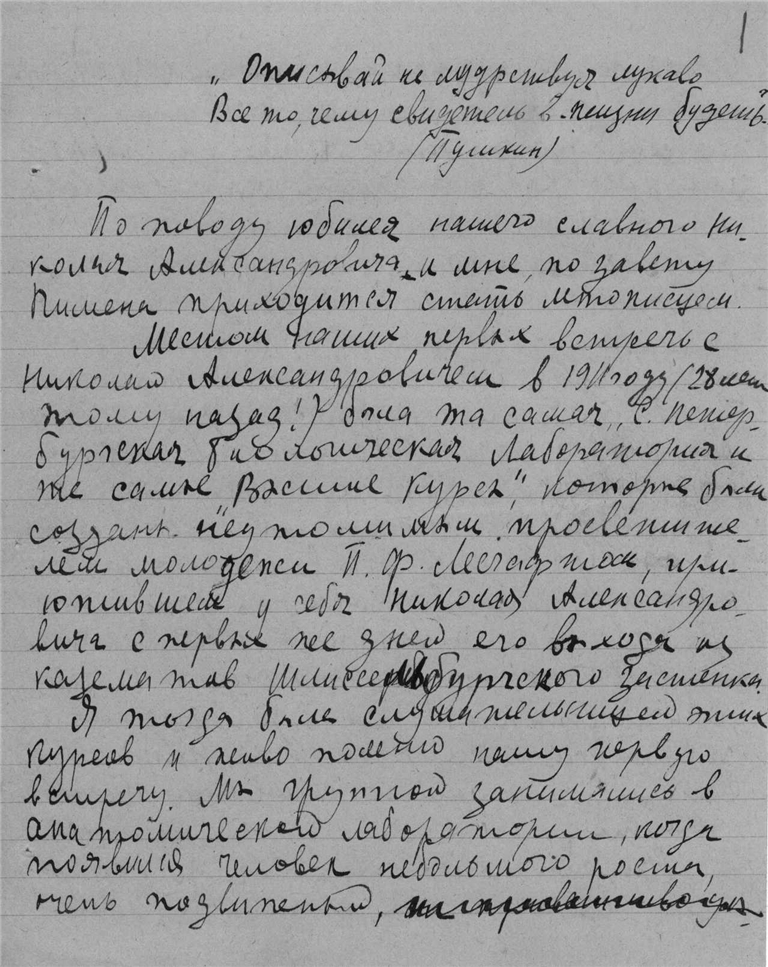 1
„Описывай не мудрствуя лукаво
Все то, чему свидетель в жизни будешь"
(Пушкин)
По поводу юбилея нашего славного Ни-
колая Александровича и мне, по завету
Пимена приходится стать летописцем.
Местом наших первых встреч с
Николаем Александровичем в 1911 году (28 лет
тому назад!) была та самая „С. Петер-
бургская биологическая лаборатория и
те самые Высшие курсы", которые были
созданы неутомимым просветите-
лем молодежи П. Ф. Лесгафтом, при-
ютившем у себя Николая Александро-
вича с первых же дней его выхода из
казематов Шлиссельбургского застенка.
Я тогда была слушательницей этих
курсов и живо помню нашу первую
встречу. Мы группой занимались в
анатомической лаборатории, когда
появился человек небольшого роста,
очень подвижный,